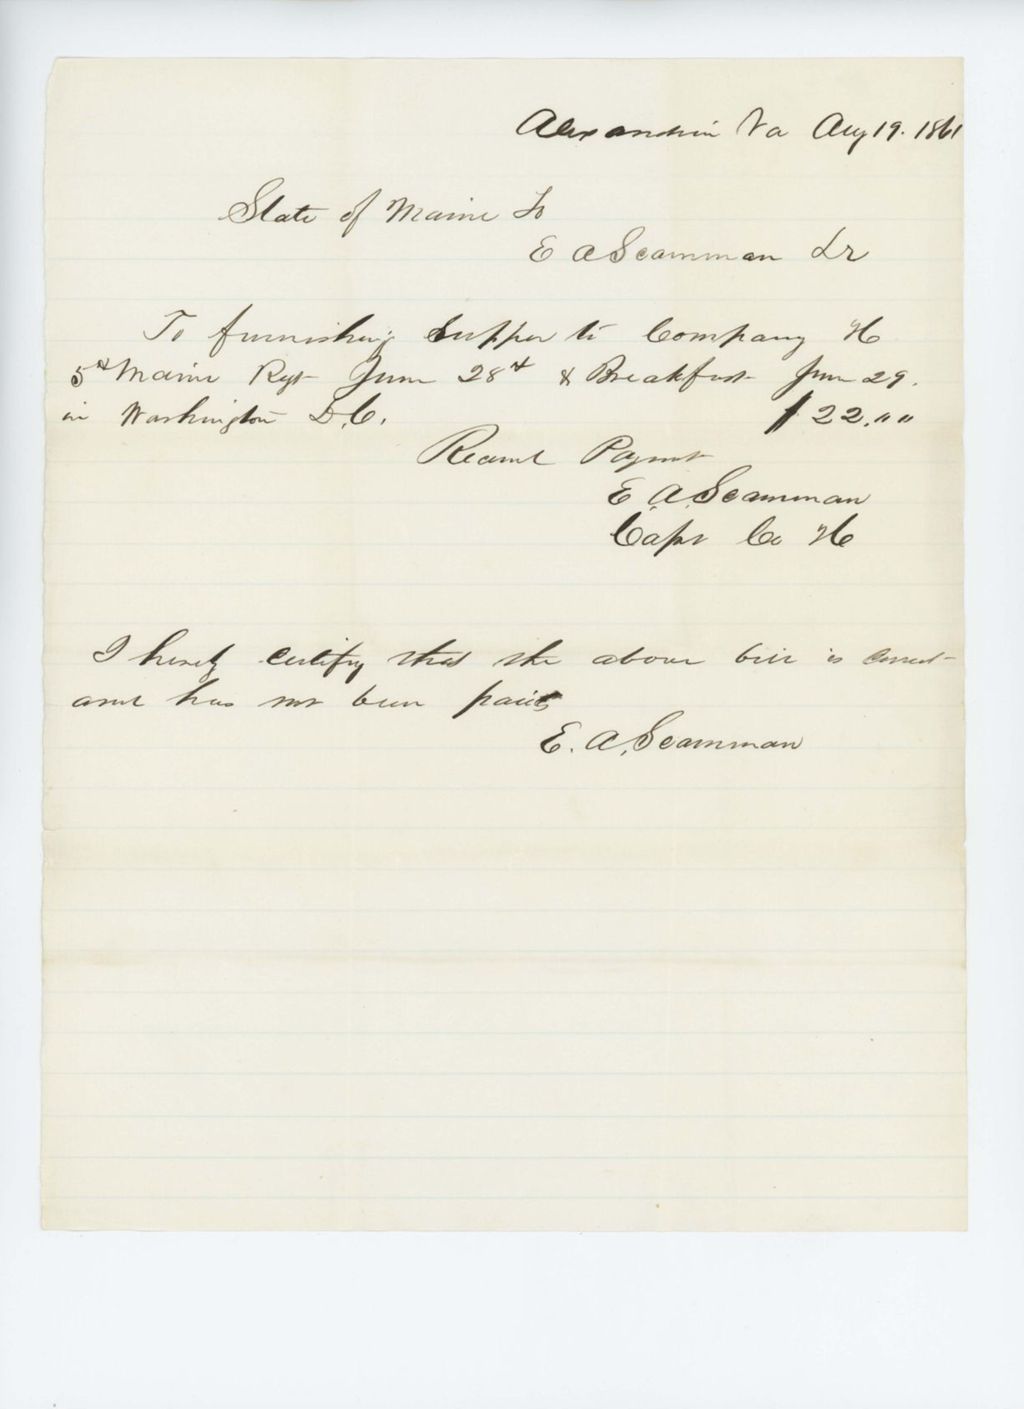 Alexandria Va Aug 19. 1861
State of Maine To
E A Scamman Dr
To furnishing Supper to Company H
5th Maine Regt June 28th & Breakfast June 29.
in Washington D.C. $22.""
Received Payment
E. A. Scamman
Capt Co H
I hereby certify that the above bill is correct
and has not been paid
E. A. Scamman